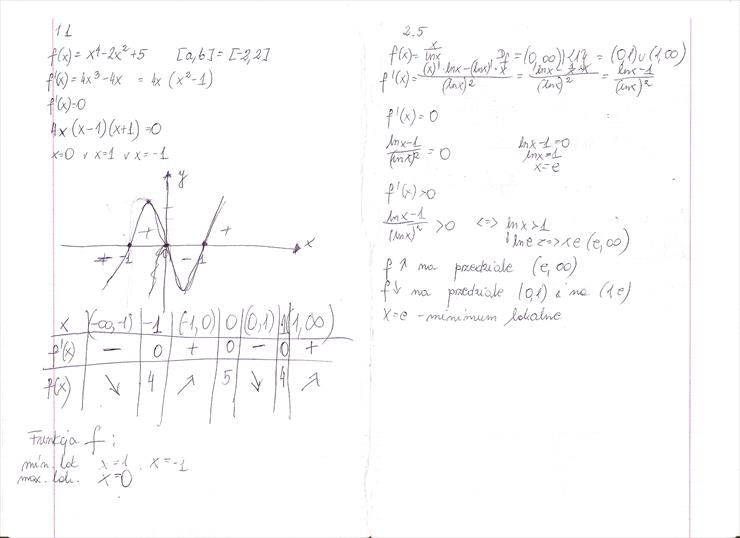 1.1
f(x) = x⁴-2x²+5   [a,b] = [-2,2]
f'(x) = 4x³-4x = 4x (x²-1)
f'(x)=0
4x (x-1)(x+1) =0
x=0 ∨ x=1 ∨ x=-1
y
+ +
x
-1 0 - 1
x (-∞,-1) -1 (-1,0) 0 (0,1) 1 (1,∞)
f'(x) - 0 + 0 - 0 +
f(x) ↘ 4 ↗ 5 ↘ 4 ↗
Funkcja f :
min. lok x=1 , x=-1
max. lok. x=0
2.5
f(x)= x/lnx   Df = (0,∞)\{1} = (0,1)∪(1,∞)
f'(x) = ((x)'·lnx-(lnx)'·x)/(lnx)² = (lnx - 1/x·x)/(lnx)² = (lnx-1)/(lnx)²
f'(x) = 0
(lnx-1)/(lnx)² = 0   lnx-1=0
lnx=1
x=e
f'(x)>0
(lnx-1)/(lnx)² >0 <=> lnx>1
lne <=> x∈(e,∞)
f ↗ na przedziale (e,∞)
f ↘ na przedziale (0,1) i na (1,e)
x=e - minimum lokalne